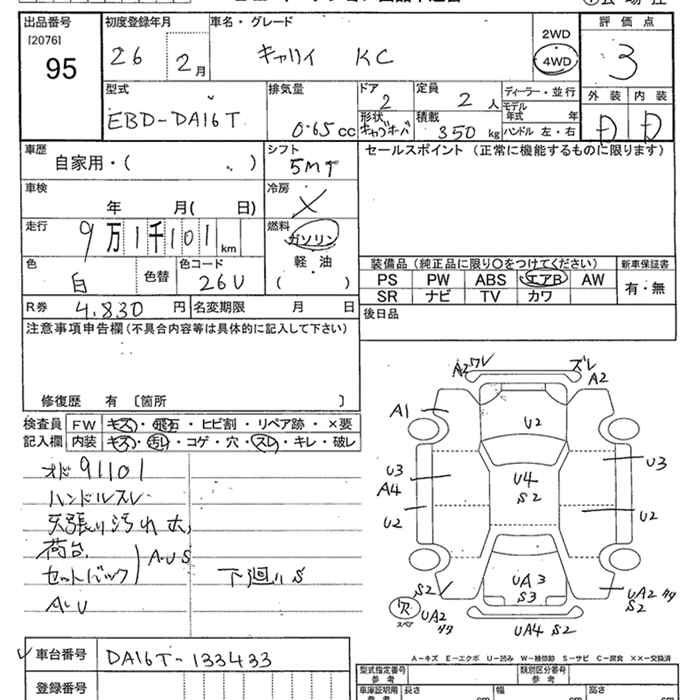 出品番号 初度登録年月 車名・グレード 評価点
[2076]
95 26 2月 キャリィ KC 2WD 4WD 3
型式 排気量 ドア 定員 ディーラー・並行 外装 内装
2 2人 モデル年式 年
EBD-DA16T 0.65cc 形状 積載 350kg ハンドル 左・右 D D
車歴 シフト セールスポイント (正常に機能するものに限ります)
自家用・( ) 5MT
車検 冷房
年 月( 日) ×
走行 燃料
9万1千101km ガソリン
色 色替 色コード 軽油 装備品 (純正品に限り○をつけてください) 新車保証書
白 26U ( ) PS PW ABS エアB AW 有・無
SR ナビ TV カワ
R券 4.830円 名変期限 月 日
後日品
注意事項申告欄(不具合内容等は具体的に記入して下さい)
修復歴 有 [箇所 ]
検査員 FW キズ・飛石・ヒビ割・リペア跡・×要
記入欄 内装 キズ・汚レ・コゲ・穴・スレ・キレ・破レ
オド91101
ハンドルスレ
天張り汚れ
荷台
セットバック A.U.S
下廻りS
A.U
A2 ワレ ズレ A2
A1 U2
U3 A4 U4 S2 U3
U2 U2
S2 UA3 S3 UA2 S2
欠 UA2
UA4 S2
A-キズ E-エクボ U-凹み W-補修跡 S-サビ C-腐食 ××-交換済
車台番号 DA16T-133433
登録番号
型式指定番号 参考 類別区分番号 参考
車庫証明用 長さ 幅 高さ